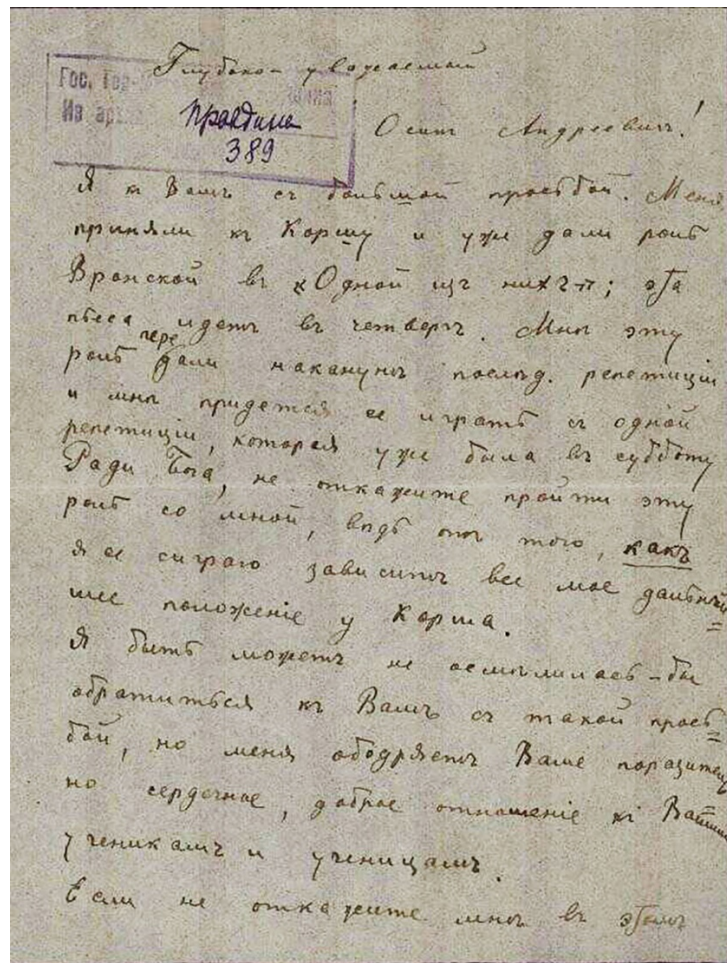 Глубокоуважаемый
Гос.
Из арх
Правдина
389
Осипъ Андреевичъ!
Я къ Вамъ съ большой просьбой. Меня
приняли къ Коршу и уже дали роль
Вронской въ «Одной изъ нихъ»; эта
пьеса идетъ въ четвергъ. Мнѣ эту
роль передали наканунѣ послѣд. репетиціи
и мнѣ придется ее играть съ одной
репетиціи, которая уже была въ субботу
Ради Бога, не откажите пройти эту
роль со мной, вѣдь отъ того, какъ
я ее сыграю зависитъ все мое дальнѣй=
шее положеніе у Корша.
Я быть можетъ не осмѣлилась-бы
обратиться къ Вамъ съ такой прось=
бой, но меня ободряетъ Ваше поразитель=
но сердечное, доброе отношеніе къ Вашимъ
ученикамъ и ученицамъ.
Если не откажите мнѣ въ этомъ